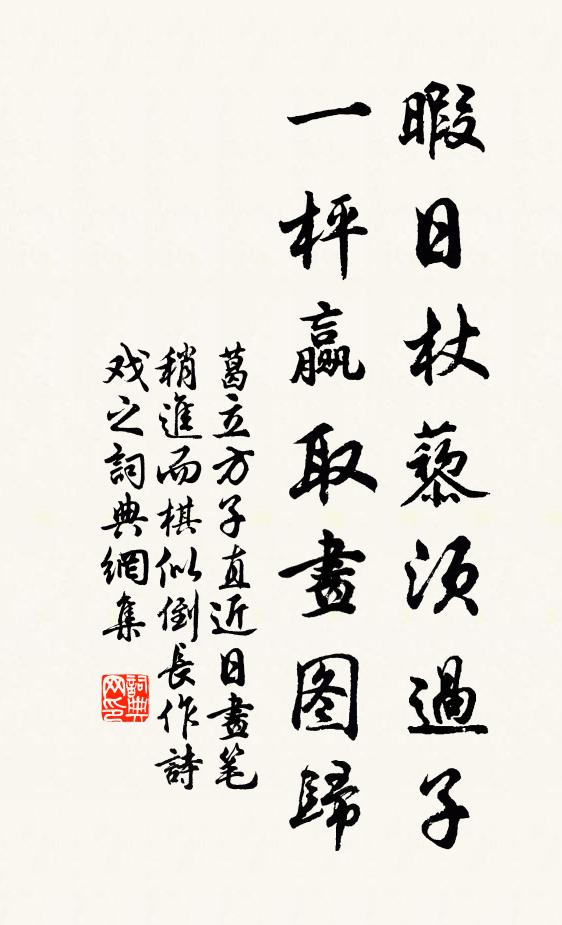 暇日杖藜须過子
一枰贏取畫图歸
葛立方子直近日畫笔
稍進而棋似倒長作詩
戏之詞典網集
詞典网印